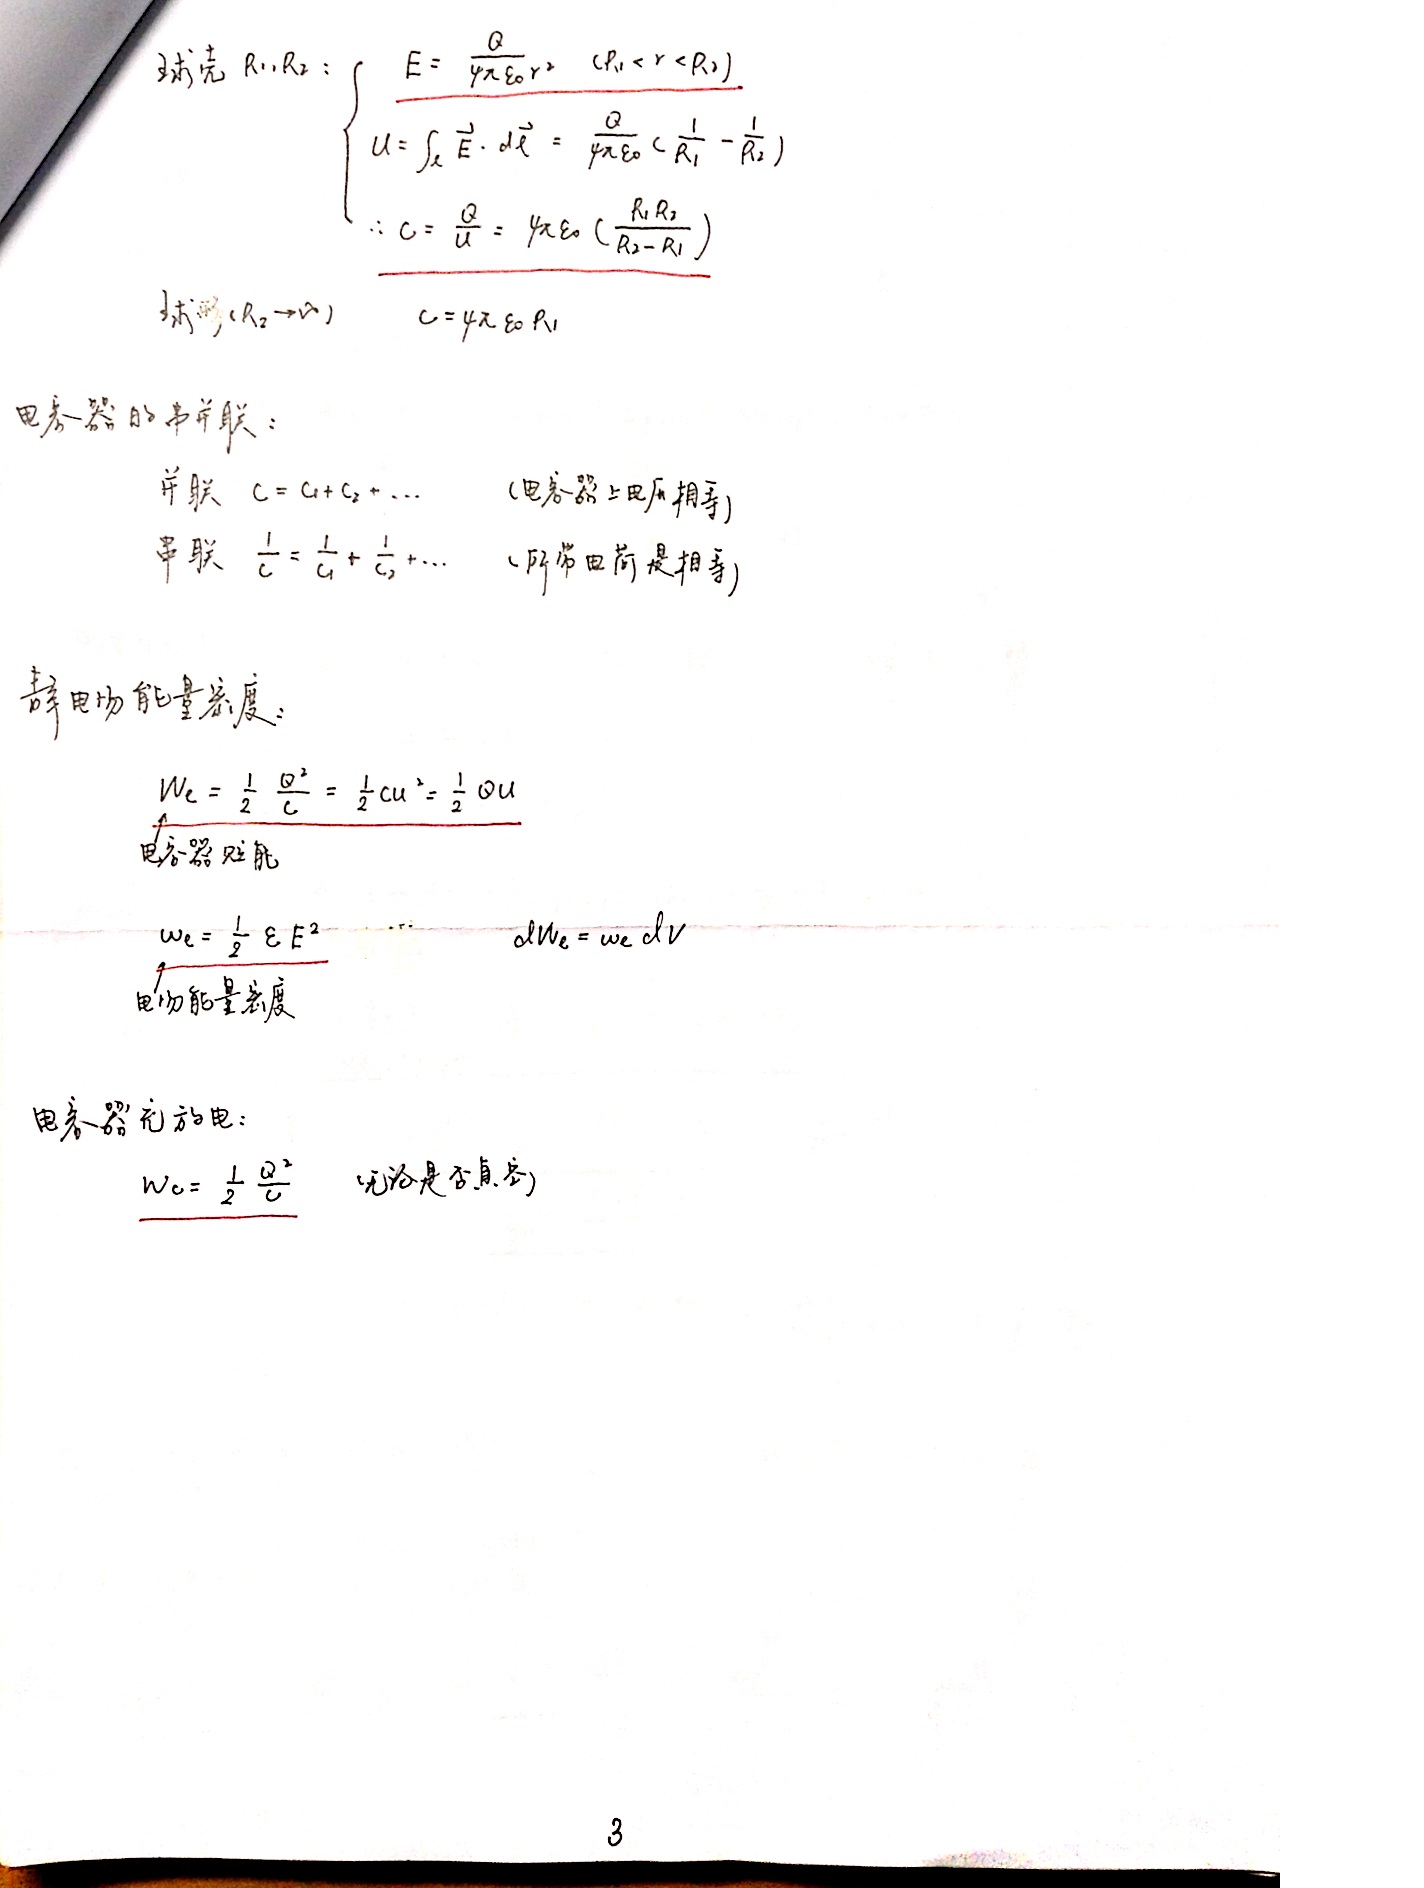 球壳 R₁,R₂: E = Q/(4πε₀r²) (R₁<r<R₂)
U = ∫ₗ E⃗·dl⃗ = Q/(4πε₀) (1/R₁ - 1/R₂)
∴ C = Q/U = 4πε₀ (R₁R₂/(R₂-R₁))
球形(R₂→∞) C = 4πε₀R₁
电容器的串并联:
并联 C = C₁+C₂+... (电容器上电压相等)
串联 1/C = 1/C₁ + 1/C₂ +... (所带电荷是相等)
静电场能量密度:
We = 1/2 Q²/C = 1/2 CU² = 1/2 QU
电容器贮能
we = 1/2 εE² ... dWe = we dV
电场能量密度
电容器充放电:
Wc = 1/2 Q²/C (无论是否真空)
3